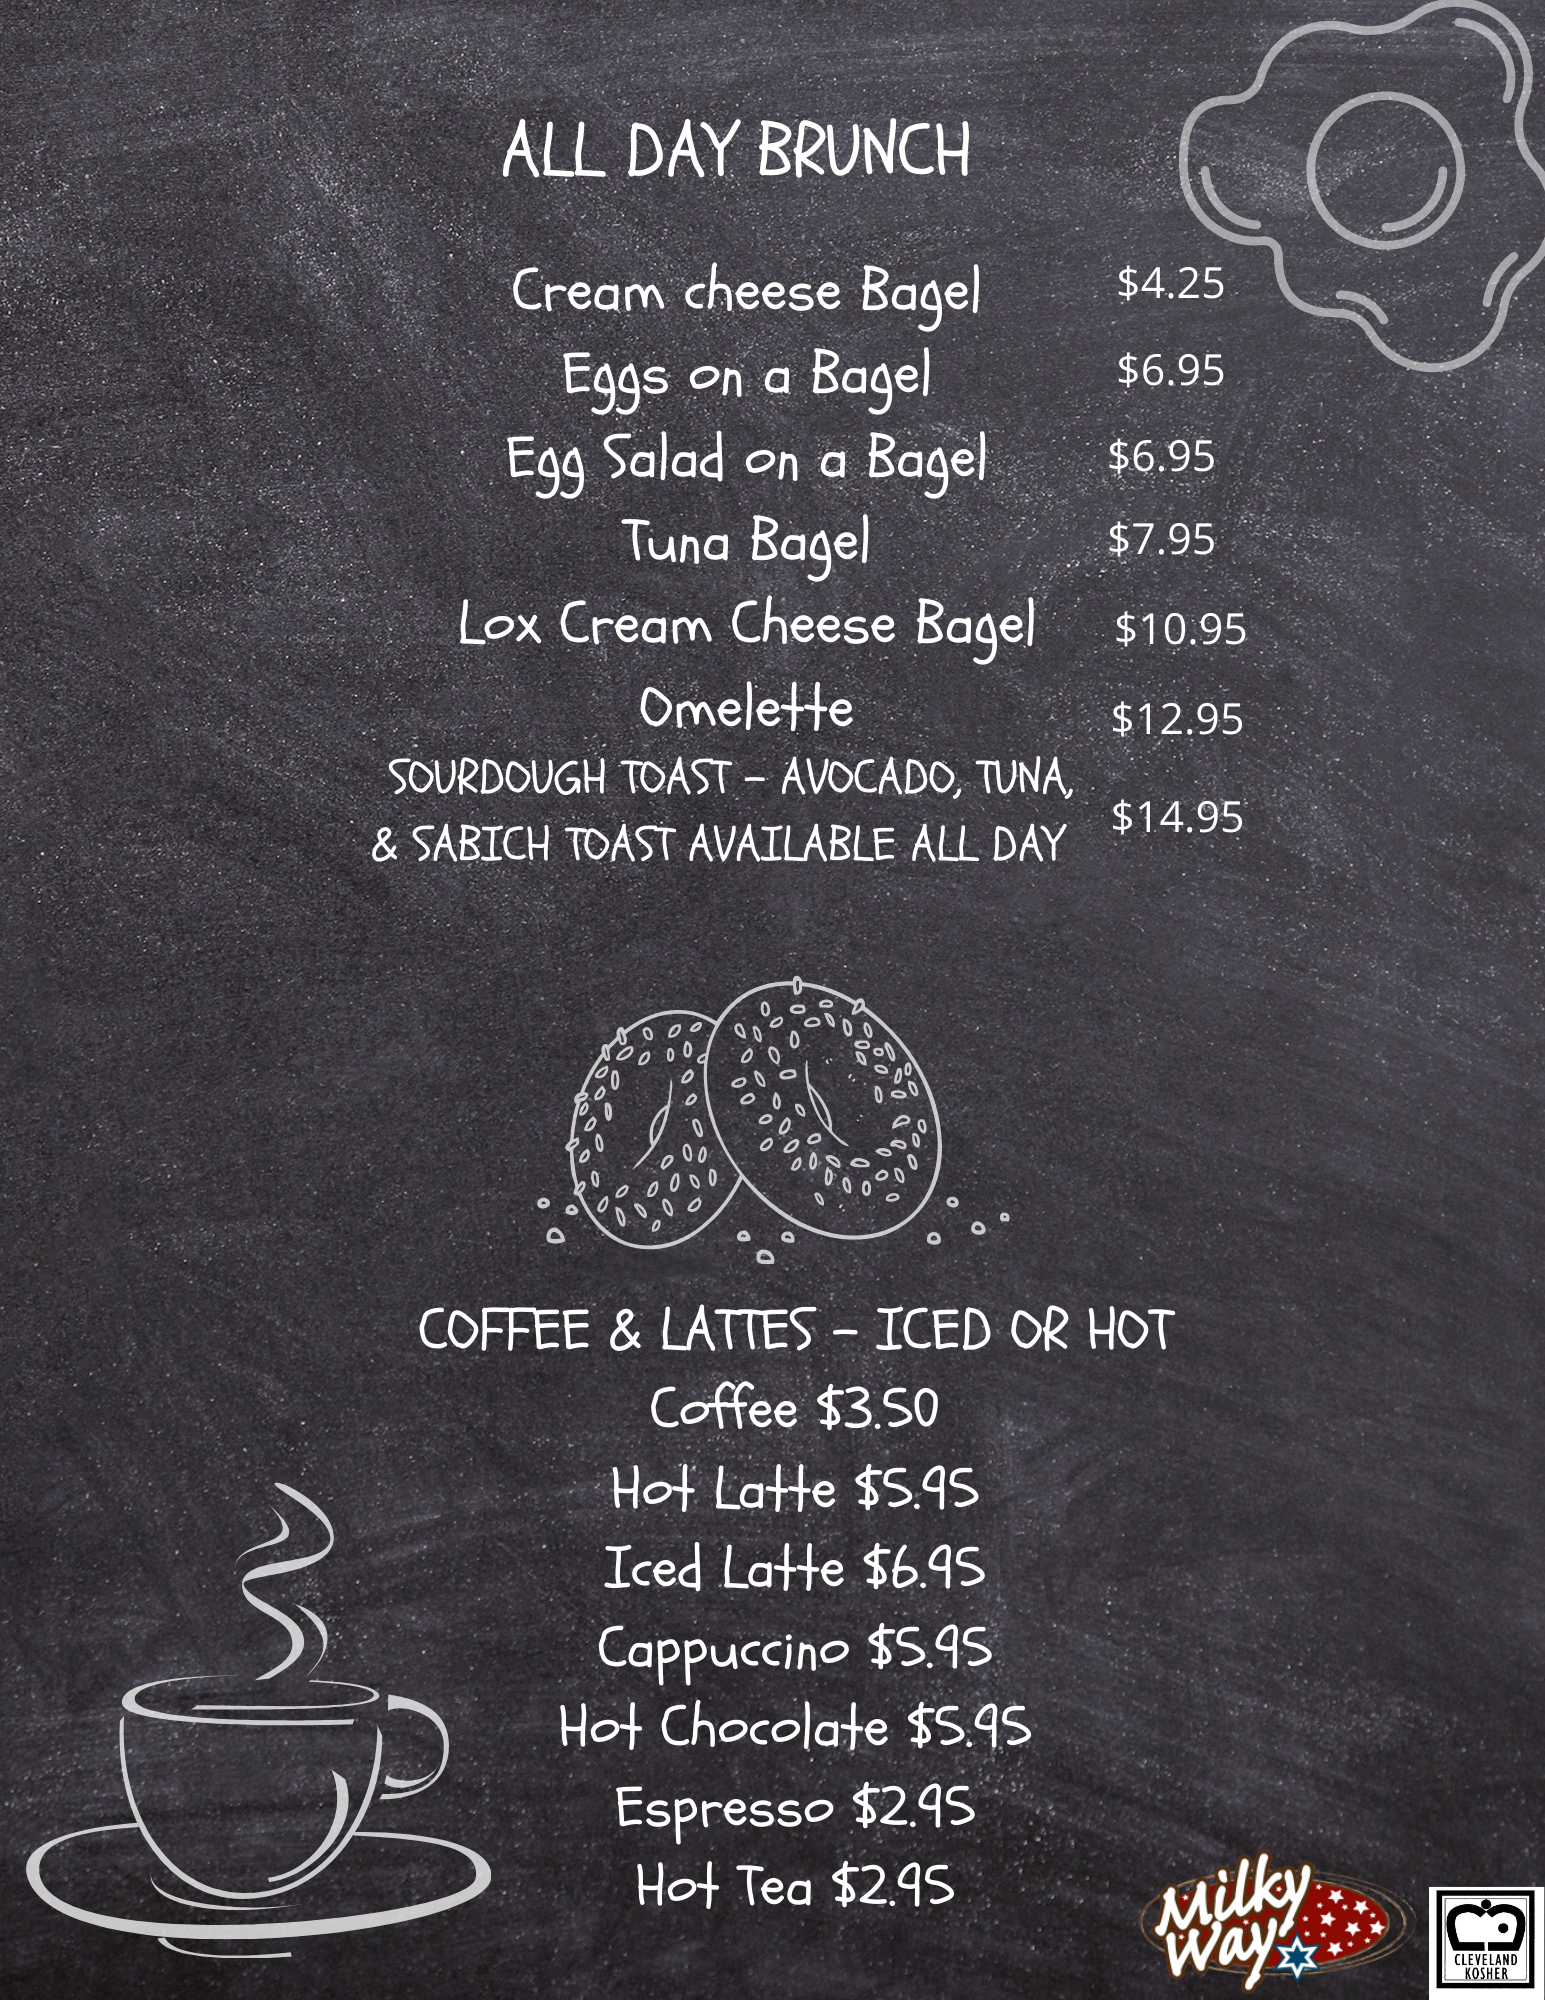 ALL DAY BRUNCH
Cream cheese Bagel $4.25
Eggs on a Bagel $6.95
Egg Salad on a Bagel $6.95
Tuna Bagel $7.95
Lox Cream Cheese Bagel $10.95
Omelette $12.95
SOURDOUGH TOAST - AVOCADO, TUNA,
& SABICH TOAST AVAILABLE ALL DAY $14.95
COFFEE & LATTES - ICED OR HOT
Coffee $3.50
Hot Latte $5.95
Iced Latte $6.95
Cappuccino $5.95
Hot Chocolate $5.95
Espresso $2.95
Hot Tea $2.95
Milky
Way
CLEVELAND
KOSHER